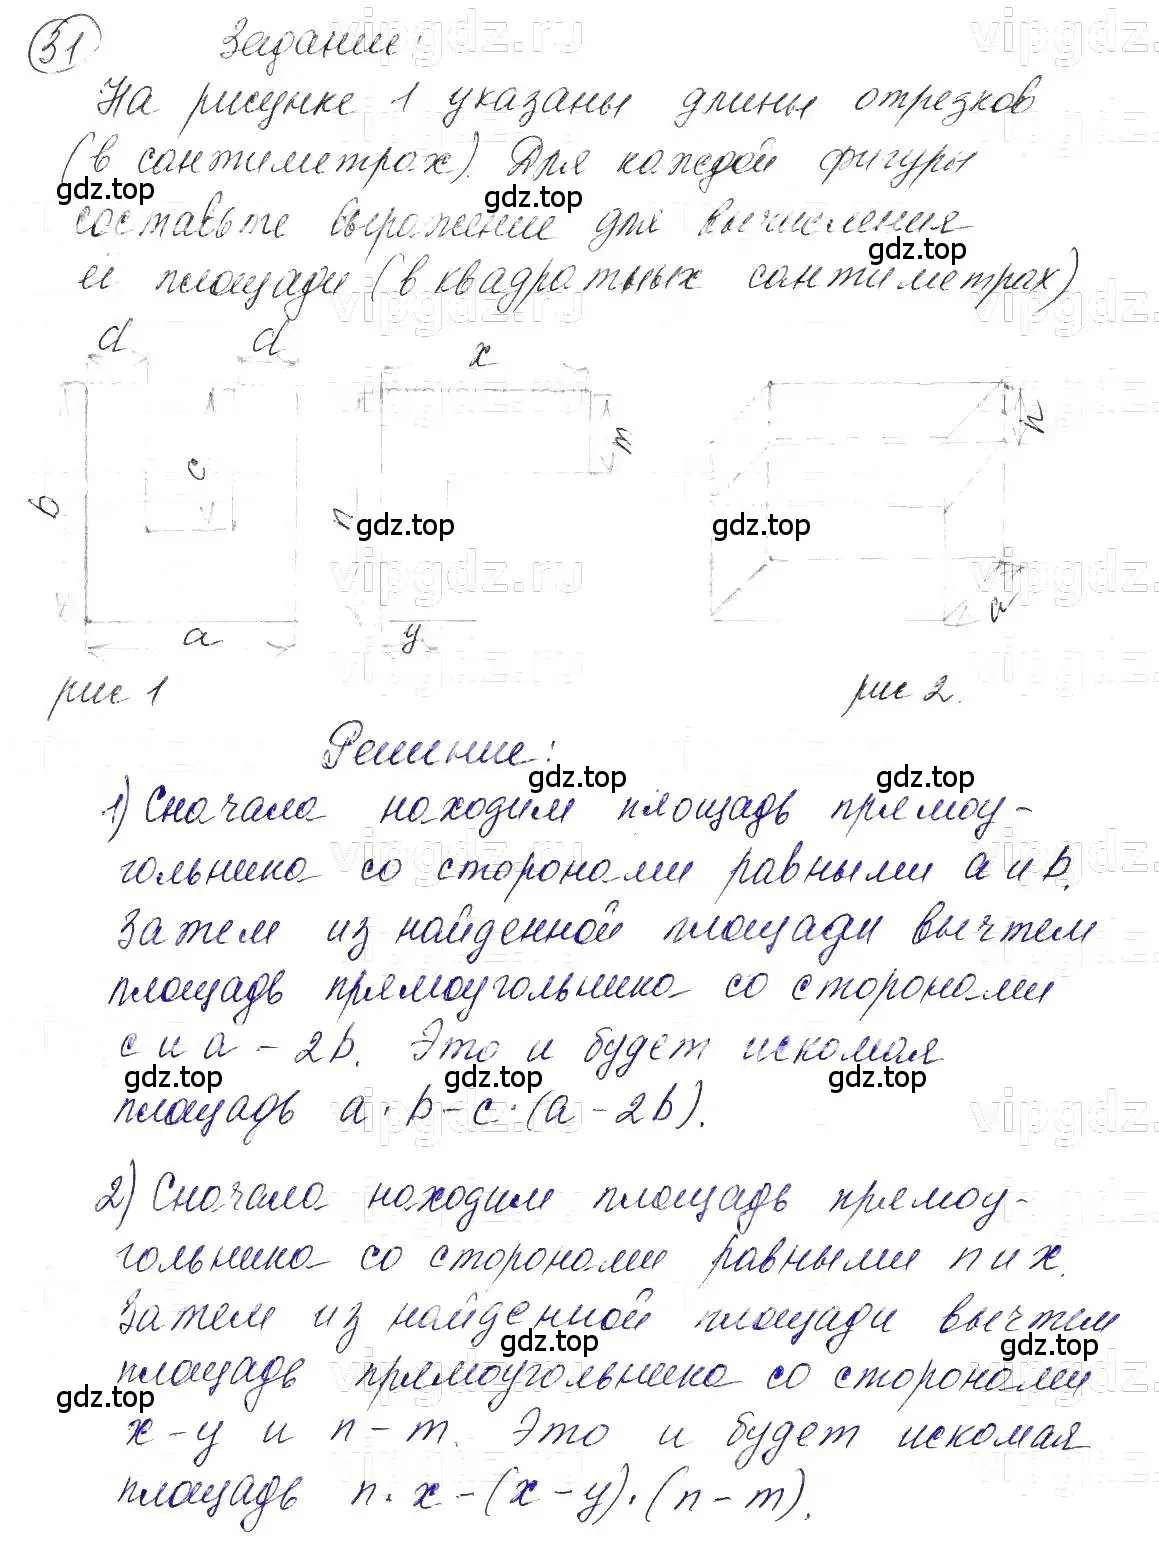 31 Задание:
На рисунке 1 указаны длины отрезков
(в сантиметрах). Для каждой фигуры
составьте выражение для вычисления
её площади (в квадратных сантиметрах)
d d x
m
n
b c n
a y a
рис 1 рис 2.
Решение:
1) Сначала находим площадь прямоу-
гольника со сторонами равными a и b.
Затем из найденной площади вычтем
площадь прямоугольника со сторонами
c и a - 2b. Это и будет искомая
площадь a · b - c · (a - 2b).
2) Сначала находим площадь прямоу-
гольника со сторонами равными n и x.
Затем из найденной площади вычтем
площадь прямоугольника со сторонами
x - y и n - m. Это и будет искомая
площадь n · x - (x - y) · (n - m).
vipgdz.ru
gdz.top